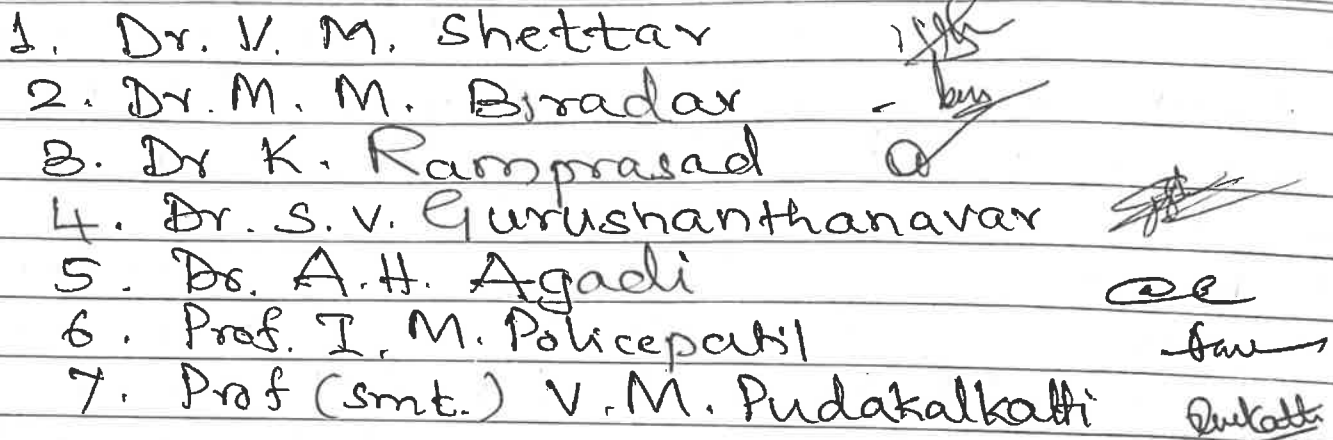 1. Dr. V. M. Shettar
2. Dr. M. M. Biradar -
3. Dr K. Ramprasad
4. Dr. S. V. Gurushanthanavar
5. Dr. A. H. Agadi
6. Prof. I. M. Policepatil
7. Prof (smt.) V. M. Pudakalkatti